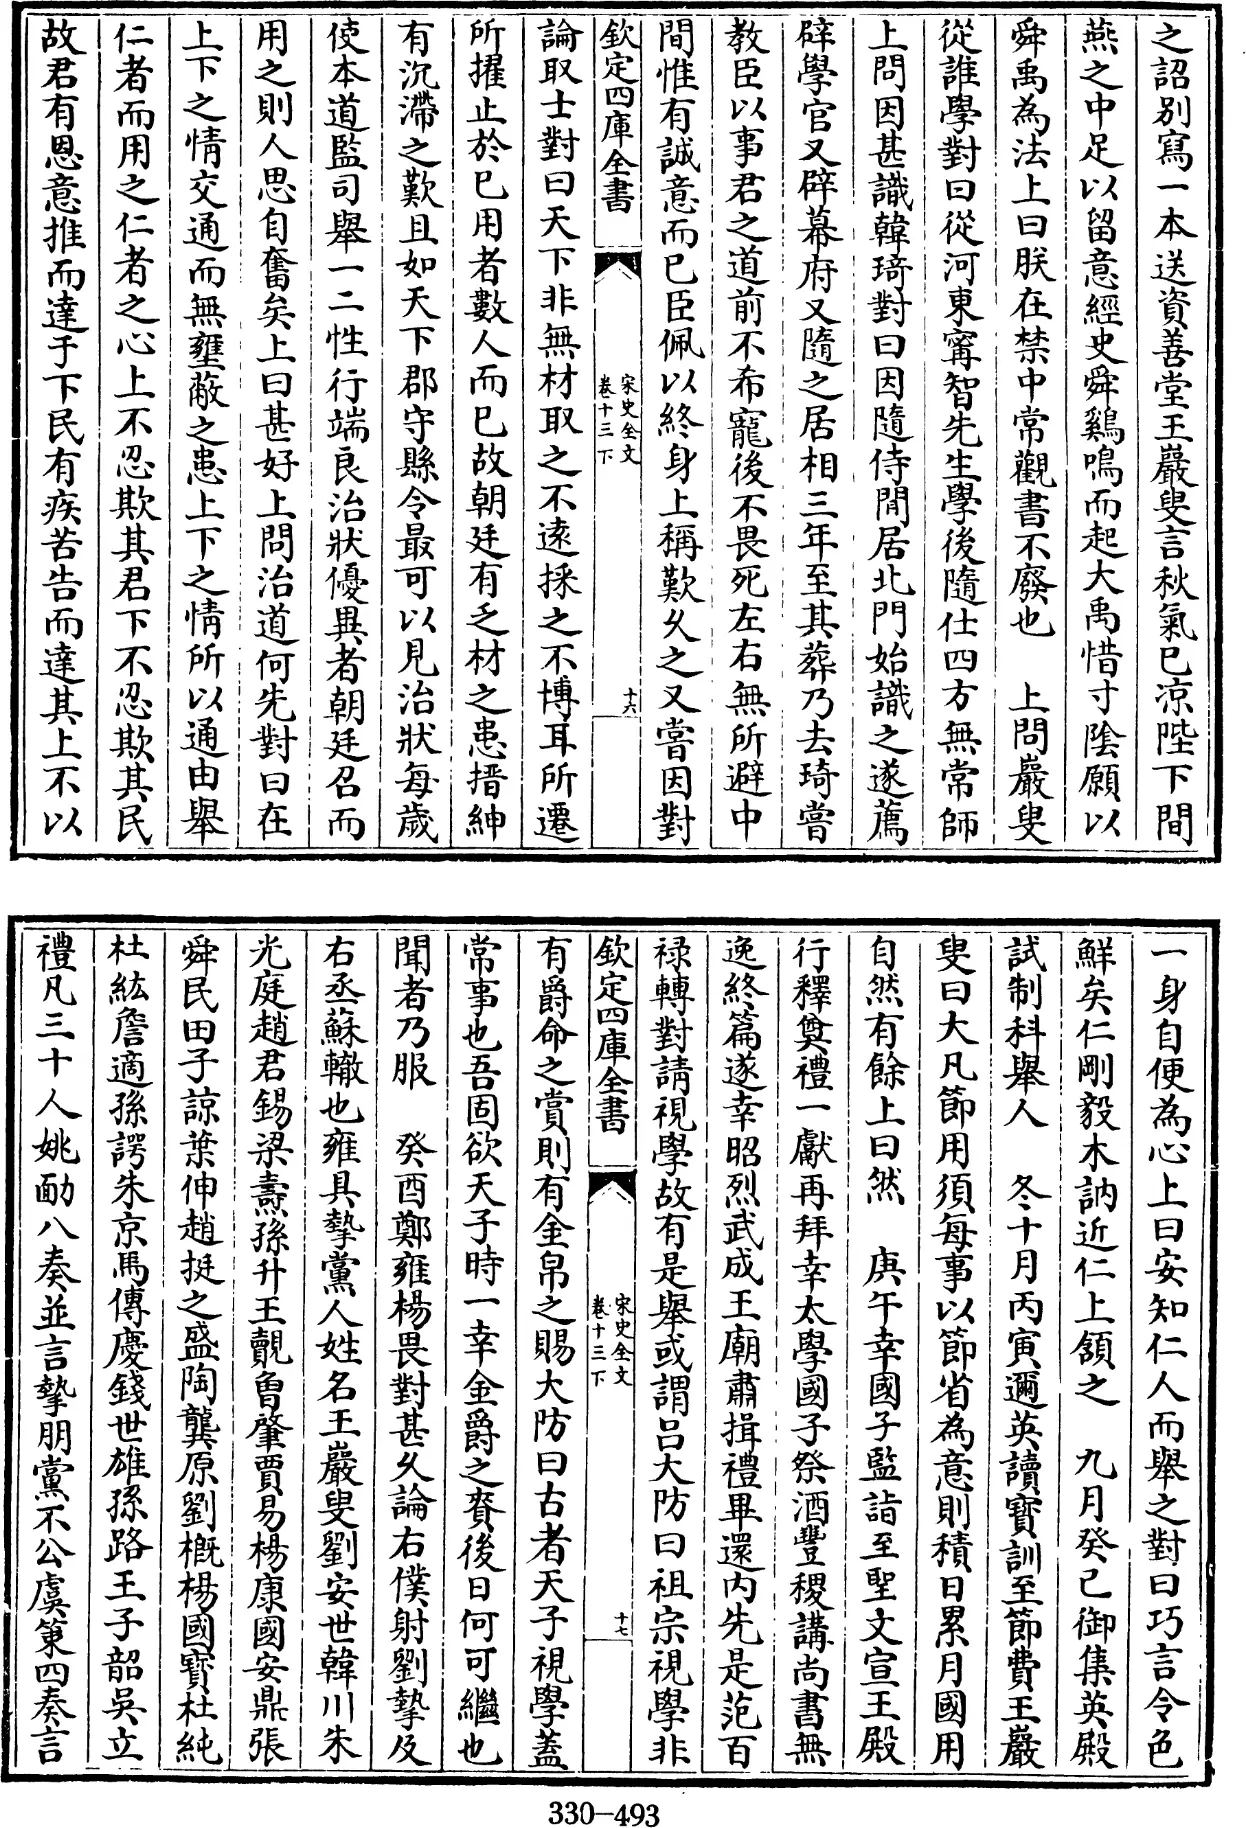 之詔別寫一本送資善堂王巖叟言秋氣已凉陛下間
燕之中足以留意經史舜鷄鳴而起大禹惜寸陰願以
舜禹為法上曰朕在禁中常觀書不廢也　上問巖叟
從誰學對曰從河東甯智先生學後隨仕四方無常師
上問因甚識韓琦對曰因隨侍閒居北門始識之遂薦
辟學官又辟幕府又隨之居相三年至其葬乃去琦嘗
教臣以事君之道前不希寵後不畏死左右無所避中
間惟有誠意而已臣佩以終身上稱歎久之又嘗因對
欽定四庫全書
宋史全文
卷十三下
十六
論取士對曰天下非無材取之不逺採之不博耳所遷
所擢止於已用者數人而已故朝廷有乏材之患搢紳
有沉滯之歎且如天下郡守縣令最可以見治狀每歲
使本道監司舉一二性行端良治狀優異者朝廷召而
用之則人思自奮矣上曰甚好上問治道何先對曰在
上下之情交通而無壅蔽之患上下之情所以通由舉
仁者而用之仁者之心上不忍欺其君下不忍欺其民
故君有恩意推而達于下民有疾苦告而達其上不以
一身自便為心上曰安知仁人而舉之對曰巧言令色
鮮矣仁剛毅木訥近仁上頷之　九月癸已御集英殿
試制科舉人　冬十月丙寅邇英讀寳訓至節費王巖
叟曰大凡節用須每事以節省為意則積日累月國用
自然有餘上曰然　庚午幸國子監詣至聖文宣王殿
行釋奠禮一獻再拜幸太學國子祭酒豐稷講尚書無
逸終篇遂幸昭烈武成王廟肅揖禮畢還内先是范百
禄轉對請視學故有是舉或謂吕大防曰祖宗視學非
欽定四庫全書
宋史全文
卷十三下
十七
有爵命之賞則有金帛之賜大防曰古者天子視學蓋
常事也吾固欲天子時一幸金爵之賚後日何可繼也
聞者乃服　癸酉鄭雍楊畏對甚久論右僕射劉摯及
右丞蘇轍也雍具摯黨人姓名王巖叟劉安世韓川朱
光庭趙君錫梁燾孫升王覿曾肇賈易楊康國安鼎張
舜民田子諒葉伸趙挺之盛陶龔原劉槩楊國寳杜純
杜紘詹適孫諤朱京馬傳慶錢世雄孫路王子韶吳立
禮凡三十人姚勔八奏並言摯朋黨不公虞策四奏言
330-493